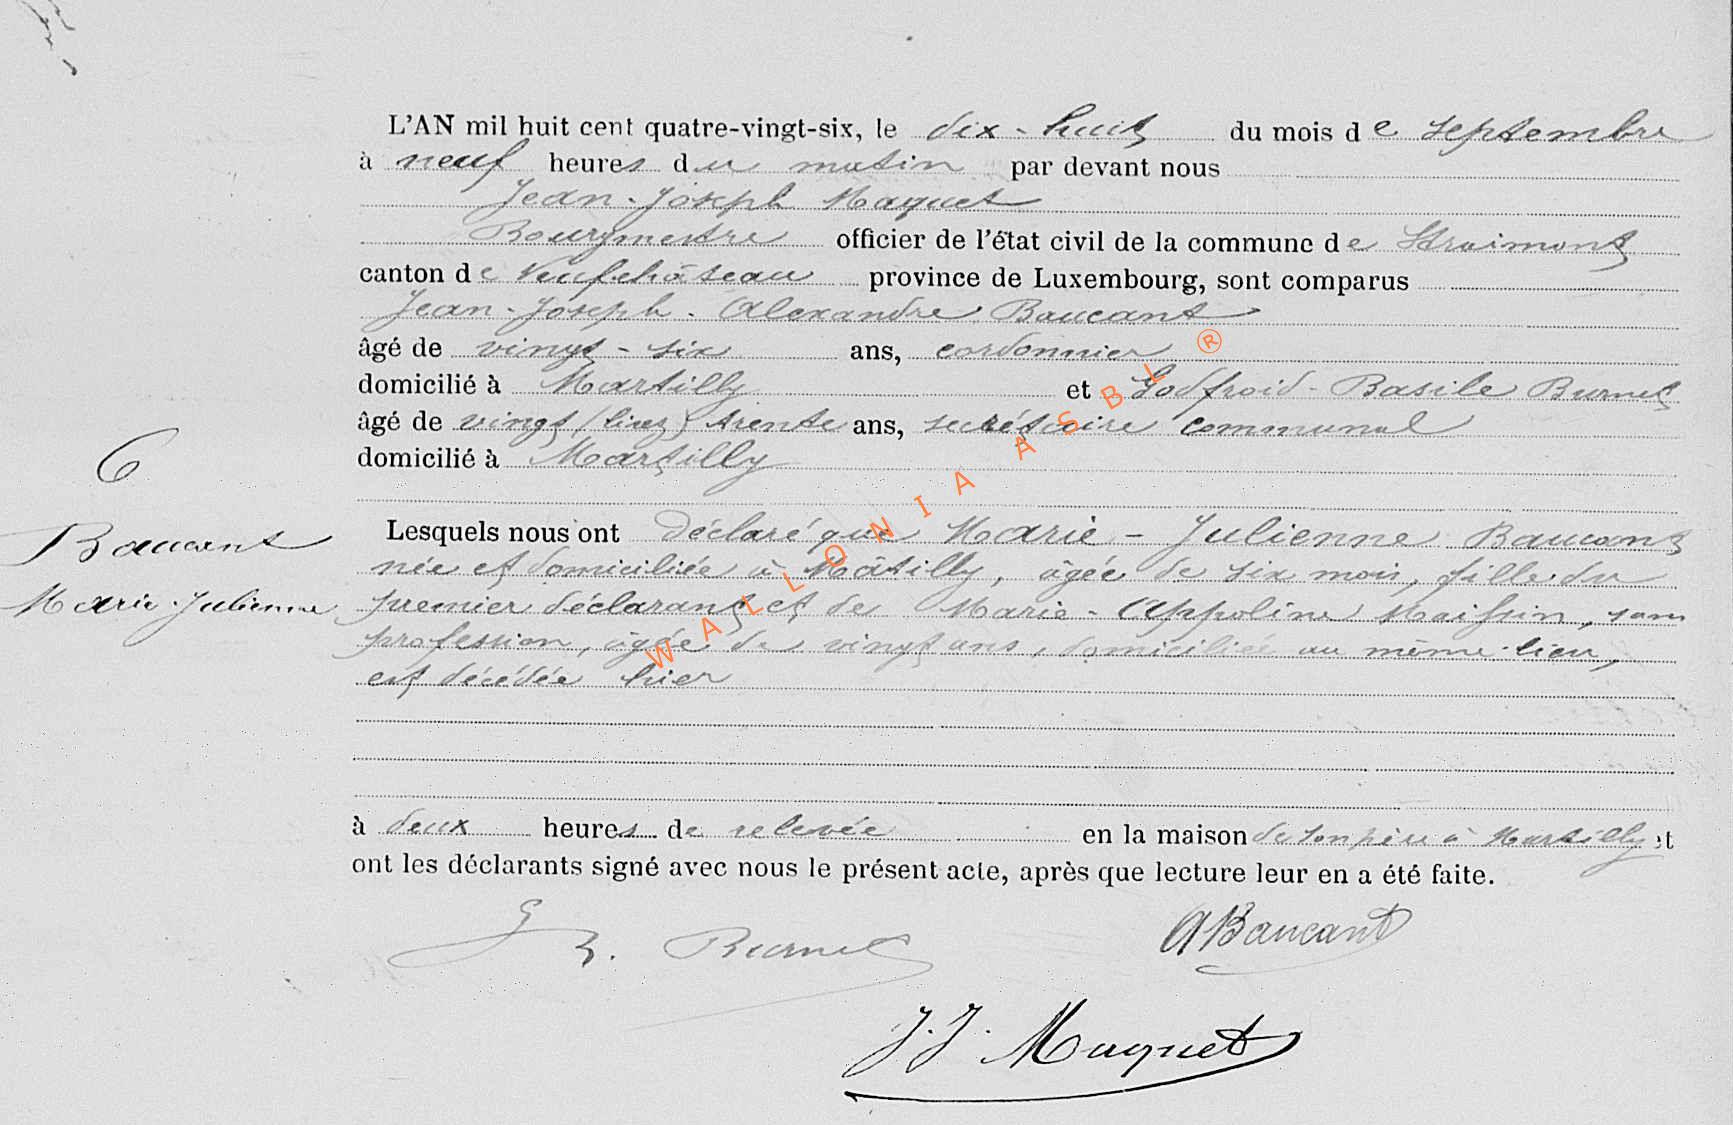 L'AN mil huit cent quatre-vingt-six, le dix-huit du mois de septembre
à neuf heures du matin par devant nous
Jean-Joseph Maquet
Bourgmestre officier de l'état civil de la commune de Straimont
canton de Neufchâteau province de Luxembourg, sont comparus
Jean-Joseph-Alexandre Baucant
âgé de vingt-six ans, cordonnier
domicilié à Martilly et Godfroid-Basile Burnet
âgé de vingt (lisez) trente ans, secrétaire communal
domicilié à Martilly
6
Baucant
Marie-Julienne
Lesquels nous ont déclaré que Marie-Julienne Baucant
née et domiciliée à Matilly, âgée de six mois, fille du
premier déclarant et de Marie-Appoline Maissin, sans
profession, âgée de vingt ans, domiciliée au même lieu,
est décédée hier
à deux heures de relevée en la maison de son père à Martilly et
ont les déclarants signé avec nous le présent acte, après que lecture leur en a été faite.
G B. Burnet
ABaucant
J. J. Maquet
WALLONIA ASBL ®